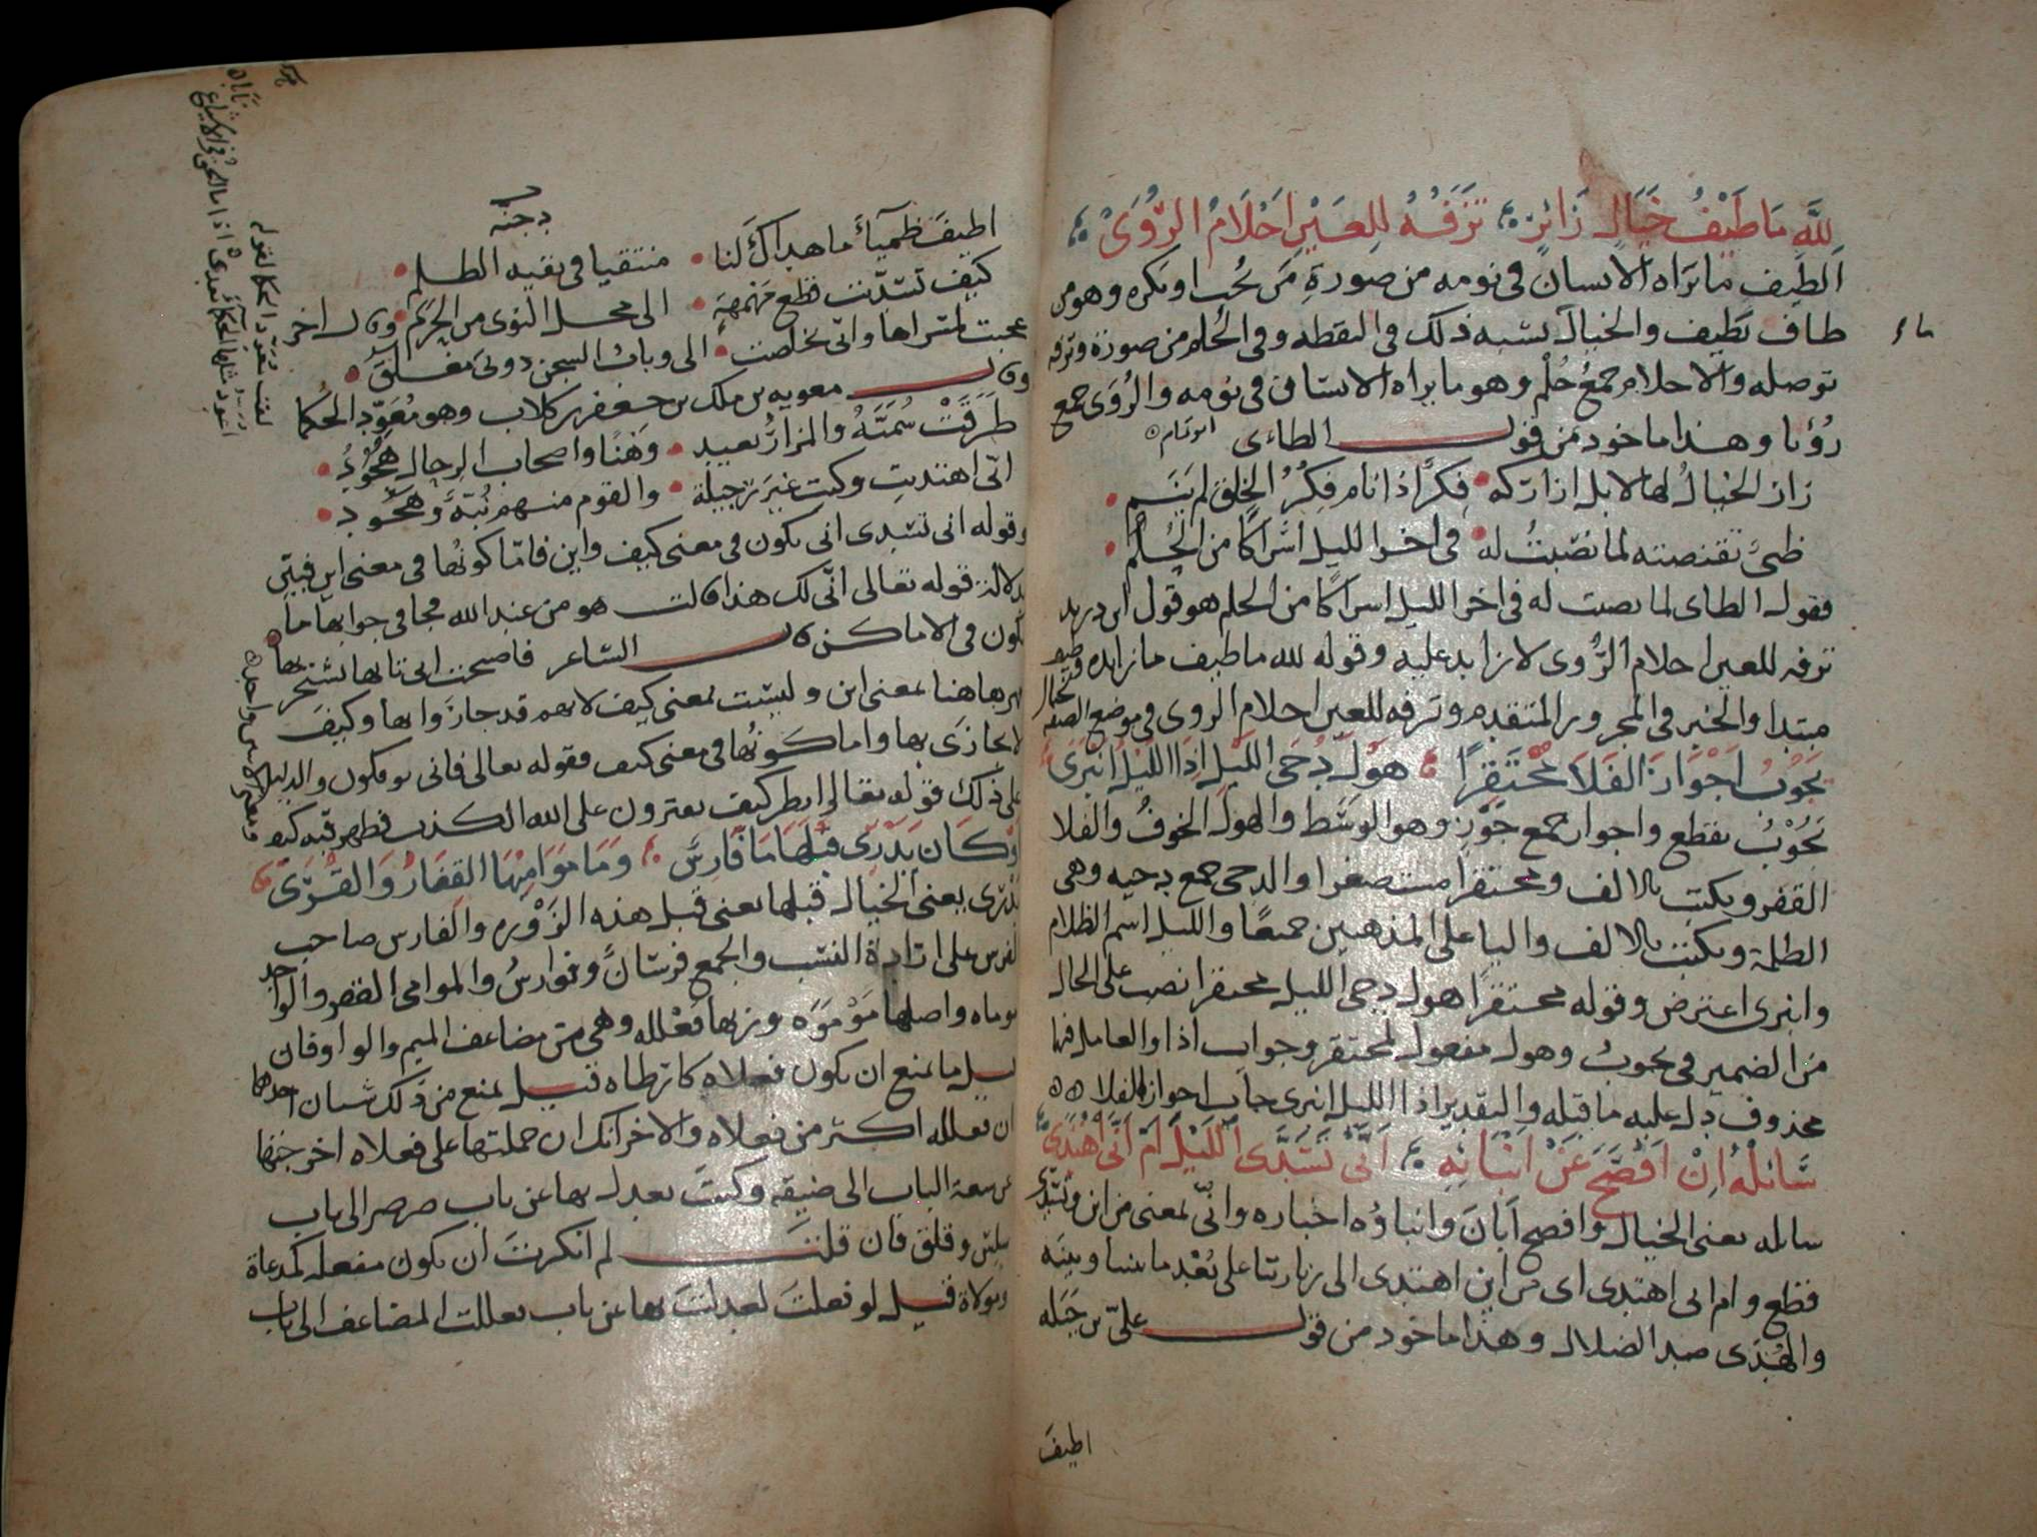 لِلَّهِ مَا طَيْفُ خَيَالٍ زَائِرٍ تَزُفُّهُ لِلعَيْنِ اَحْلَامُ الرُّؤَى
الطيف ما يَراه الانسان في نومه من صورةِ مَن يُحب او يكره وهو من
طاف يَطيف والخيال يشبه ذلك في اليقظه وفي الحُلم من صورة وتزفه
توصله والاحلام جمعُ حُلْم وهو ما يراه الانسان في نومه والرُؤى جمع
رُؤيا وهذا ماخوذ من قول الطاءى ابو تمام
زار الخيالُ لها لا بل ازاركه فِكرٌ اذا نام فِكرُ الخلق لم يَنَم
ظبىٌ تقنصته لما نصبتُ له في اخر الليل اَشراكًا من الحُلُم
فقول الطاى لما نصبت له في اخر الليل اسراكًا من الحلم هو قول ابن دريد
تزفه للعين احلام الرُّوى لا زايد عليه وقوله لله ما طيف ما زايده وطيف خيال
مبتدا والخبر في المجرور المتقدم وتزفه للعين احلام الروى في موضع الصفه
يَجُوبُ اَجْوَازَ الفَلَا مُحْتَقِرًا هَوْلَ دُجَى اللَّيْلِ اِذَا اللَّيْلُ انْبَرَى
يَجُوْبُ يقطع واجواز جمع جَوْزٍ وهو الوسَط والهول الخوفُ والفلا
القفر ويكتب بالالف ومحتقرا مستصغرا والدجى جمع دجيه وهى
الظلمة ويكتب بالالف واليا على المذهبين جميعًا والليل اسم الظلام
وانبرى اعترض وقوله محتقرًا هول دجى الليل محتقرا نصب على الحال
من الضمير في يجوبُ وهول مفعول لمحتقر وجواب اذا والعامل فيها
محذوف دل عليه ما قبله والتقدير اذا الليل انبرى جاب اجواز الفلا
سَائِلْهُ اِنْ اَفْصَحَ عَنْ اَنْبَائِهِ اَنَّى تَسَدَّى اللَّيْلَ اَمْ اَنَّى اهْتَدَى
سايله يعنى الخيال وافصح اَبانَ وانباؤه اخباره وانّى بمعنى من اين وتسدى
قطع وام انى اهتدى اى من اين اهتدى الى زيارتنا على بُعْد ما بيننا وبينَه
والهُدَى ضد الضلال وهذا ماخوذ من قول علىّ بن جَبَله
اطيفَ
اطيفَ ظميآءَ ما هداكَ لنا منتقيا في بقيه الظلم
دجنه
كيف تسدّيت قطع مَهْمهَةٍ الى محل النوى من الحَرَم وقال اخر
عجبت لمسراها وانّى تخلصت الىَّ وباب السجن دونىَ مغلقُ
وقال معويه بن ملك بن جعفر بن كلاب وهو مُعَوّد الحُكما
طَرَقَتْ سُمَيَّةُ والمزارُ بعيد وَهْنًا واصحاب الرحال هُجُودُ
انّى اهتديتِ وكنت غيرَ رجيلة والقوم منهم نُبَّهٌ وهُجُود
وقوله انى تسدى انى يكون في معنى كيف واين فامّا كونُها في معنى اين فيبيّن
بدلالة قوله تعالى انّى لك هذا قالت هو من عند الله فجا في جوابها ما
يكون في الاماكن قال الشاعر فاصبحت انى تاتها تشتجر بها
فهى هاهنا بمعنى اين وليست بمعنى كيف لانهم قد جازوا بها وكيف
لا يجازَى بها واما كونُها في معنى كيف فقوله تعالى فانى يوفكون والدليل
على ذلك قوله تعالى انظر كيف يفترون على الله الكذب فظهر فيه كيف
اَوْ كَانَ يَدْرِى قَبْلَهَا مَا فَارِسٌ وَمَا مَوَامِيْهَا القِفَارُ وَالقُرَى
يدرى يعنى الخيال قبلها يعنى قبل هذه الزَوْره والفارس صاحب
الفرس على ارادة النسب والجمع فرسانٌ وفوارسُ والموامى القفر والواحد
موماه واصلها مَوْمَوَه وزنها فَعْلله وهى من مضاعف الميم والواو فان
قيل ما يمنع ان يكون فعلاه كارطاه قيل يمنع من ذلك شيان احدهما
ان فعلله اكثر من فعلاه والاخر انك ان حملتها على فعلاه اخرجتها
عن سعة الباب الى ضيقه وكنتَ تعدل بها عن باب صرصر الى باب
سلس وقلق فان قلت لم انكرتَ ان يكون مفعله كمدعاة
ومولاة قيل لو فعلتَ لعدلتَ بها عن باب فعللت المضاعف الى باب